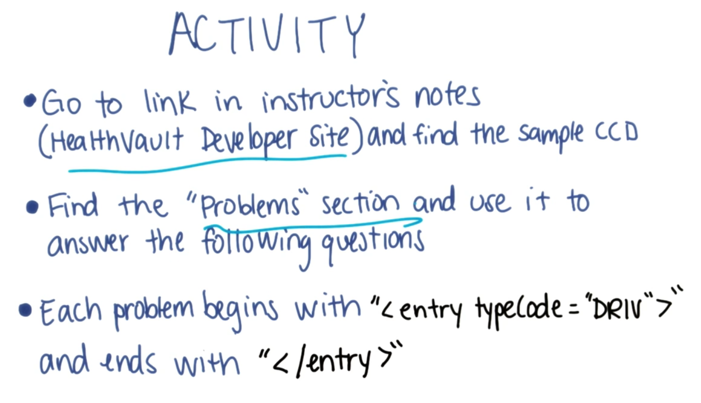 ACTIVITY
• Go to link in instructor's notes
(HealthVault Developer Site) and find the sample CCD
• Find the "Problems" section and use it to
answer the following questions
• Each problem begins with "<entry typeCode="DRIV">"
and ends with "</entry>"